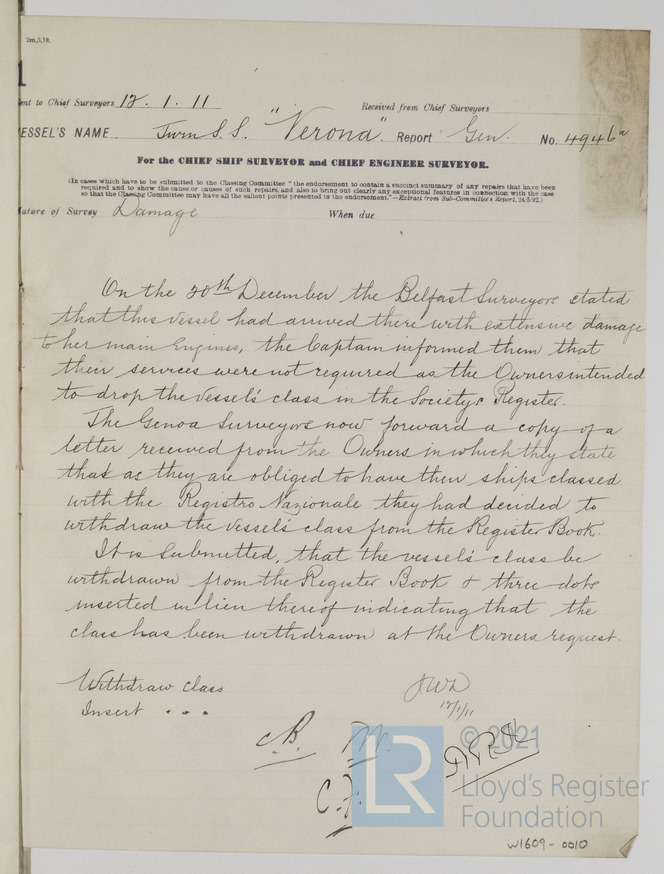 2m,3,10.
1
ent to Chief Surveyors 12. 1. 11
Received from Chief Surveyors
ESSEL'S NAME Twin S.S. "Verona". Report Gen. No. 4946a
For the CHIEF SHIP SURVEYOR and CHIEF ENGINEER SURVEYOR.
(In cases which have to be submitted to the Classing Committee "the endorsement to contain a succinct summary of any repairs that have been
required and to show the cause or causes of such repairs, and also to bring out clearly any exceptional features in connection with the case
so that the Classing Committee may have all the salient points presented in the endorsement."—Extract from Sub-Committee's Report, 24/5/92.)
ature of Survey Damage When due
On the 20th December the Belfast Surveyors stated
that this vessel had arrived there with extensive damage
to her main Engines, the Captain informed them that
their services were not required as the Owners intended
to drop the vessel's class in the Society's Register.
The Genoa Surveyors now forward a copy of a
letter received from the Owners in which they state
that as they are obliged to have their ships classed
with the Registro Nazionale they had decided to
withdraw the vessel's class from the Register Book.
It is submitted, that the vessel's class be
withdrawn from the Register Book & three dots
inserted in lieu thereof indicating that the
class has been withdrawn at the Owners request.
Withdraw class
Insert . . .
12/1/11
LR
© 2021
Lloyd's Register
Foundation
W1609-0010